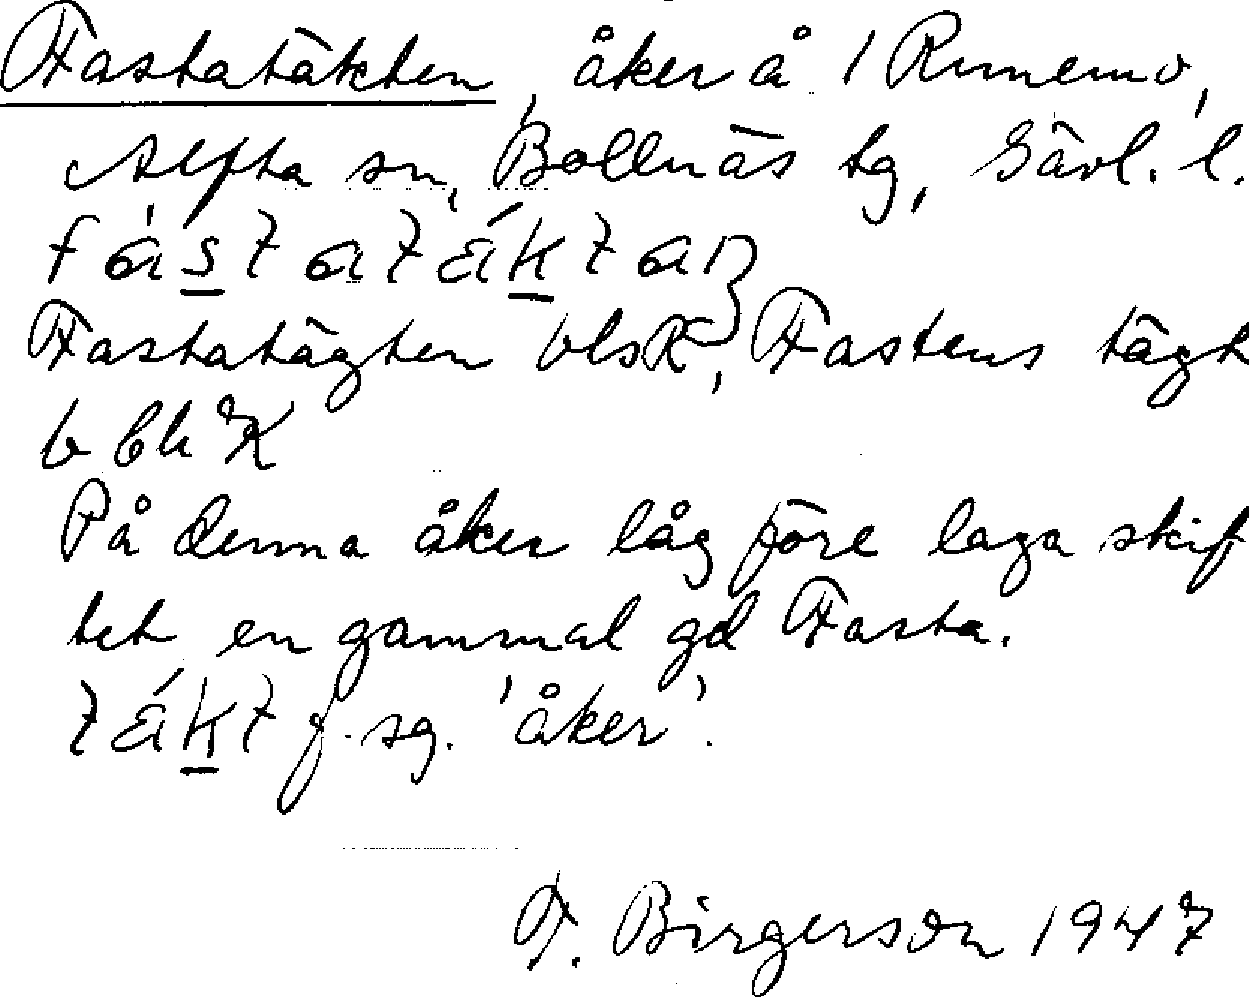 Fastatäkten, åker å 1 Runemo,
Alfta sn, Bollnäs tg, Gävl. l.
fástatäktan
Fastatägten vlsK, Fastens tägt
På denna åker låg före laga skif
tet en gammal gd Fasta.
täkt f. sg. 'åker'.
F. Birgerson 1947